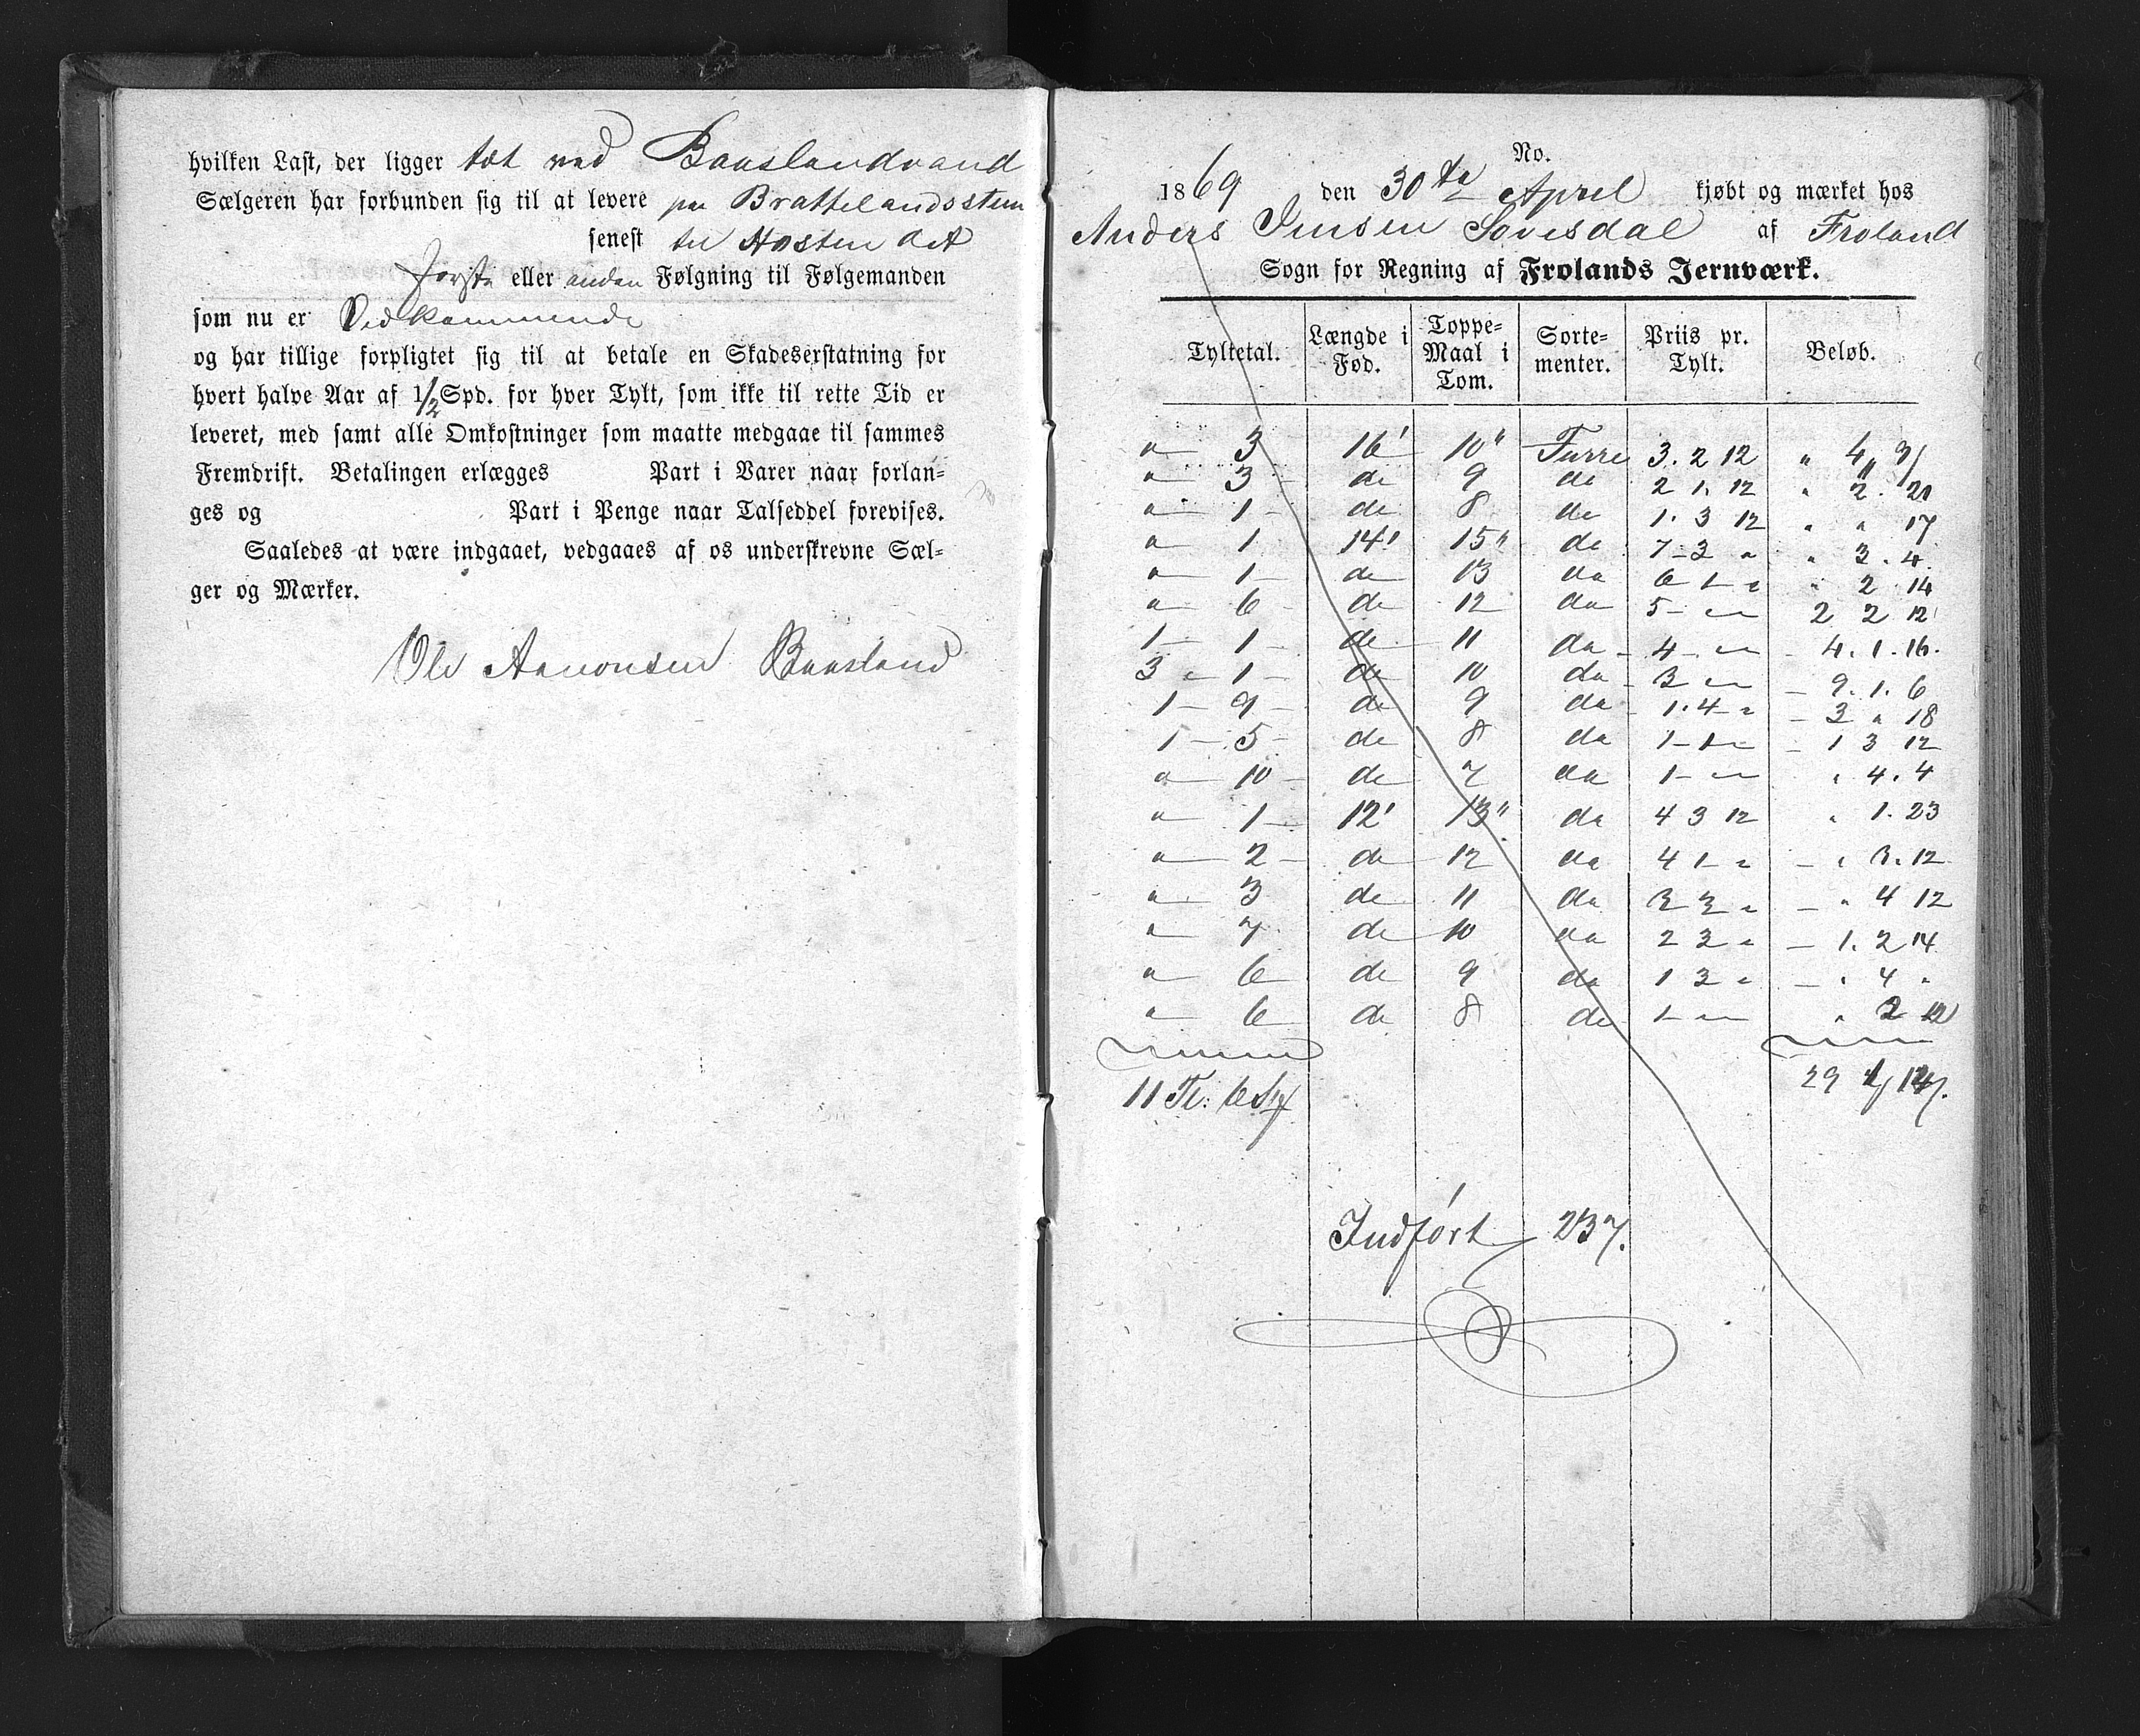 hvilken Last, der ligger tæt ved Baaslandvand
Sælgeren har forbunden sig til at levere paa Brattelandsstem
senest til Høsten det
første eller anden Følgning til Følgemanden
som nu er Vedkommende
og har tillige forpligtet sig til at betale en Skadeserstatning for
hvert halve Aar af 1/2 Spd. for hver Tylt, som ikke til rette Tid er
leveret, med samt alle Omkostninger som maatte medgaae til sammes
Fremdrift. Betalingen erlægges Part i Varer naar forlan-
ges og Part i Penge naar Talseddel forevises.
Saaledes at være indgaaet, vedgaaes af os underskrevne Sæl-
ger og Mærker.
Ole Aanonsen Baasland
No.
1869 den 30te April kjøbt og mærket hos
Anders Jensen Sovesdal af Froland
Sogn for Regning af Frolands Jernværk.
Tyltetal. Længde i Fod. Toppe-Maal i Tom. Sorte-menter. Priis pr. Tylt. Beløb.
" 3 16' 10" Furre 3. 2 12 " 4
" 3 do 9 do 2 1. 12 " 2. 21
" 1 do 8 do 1. 3 12 " " 17
" 1 14' 15" do 7 - 3 " " 3. 4
" 1 do 13 do 6 1 " " 2 14
" 6 do 12 do 5 - " 2 2 12
1 - 1 do 11 do 4 - " 4. 1. 16.
3 - 1 do 10 do 3 - " 9. 1. 6
1 - 9 do 9 do 1. 4 " 3 " 18
1 - 5 do 8 do 1 - 1 - 1 3 12
" 10 do 7 do 1 - " " 4. 4
" 1 12' 13" do 4 3 12 " 1. 23
" 2 do 12 do 4 1 " " 3. 12
" 3 do 11 do 3 3 " " 4 12
" 7 do 10 do 2 3 " 1. 2 14
" 6 do 9 do 1 3 " " 4 "
" 6 do 8 do 1 - " " 2 12
11 Tl: 6 St 29
Indført 237.